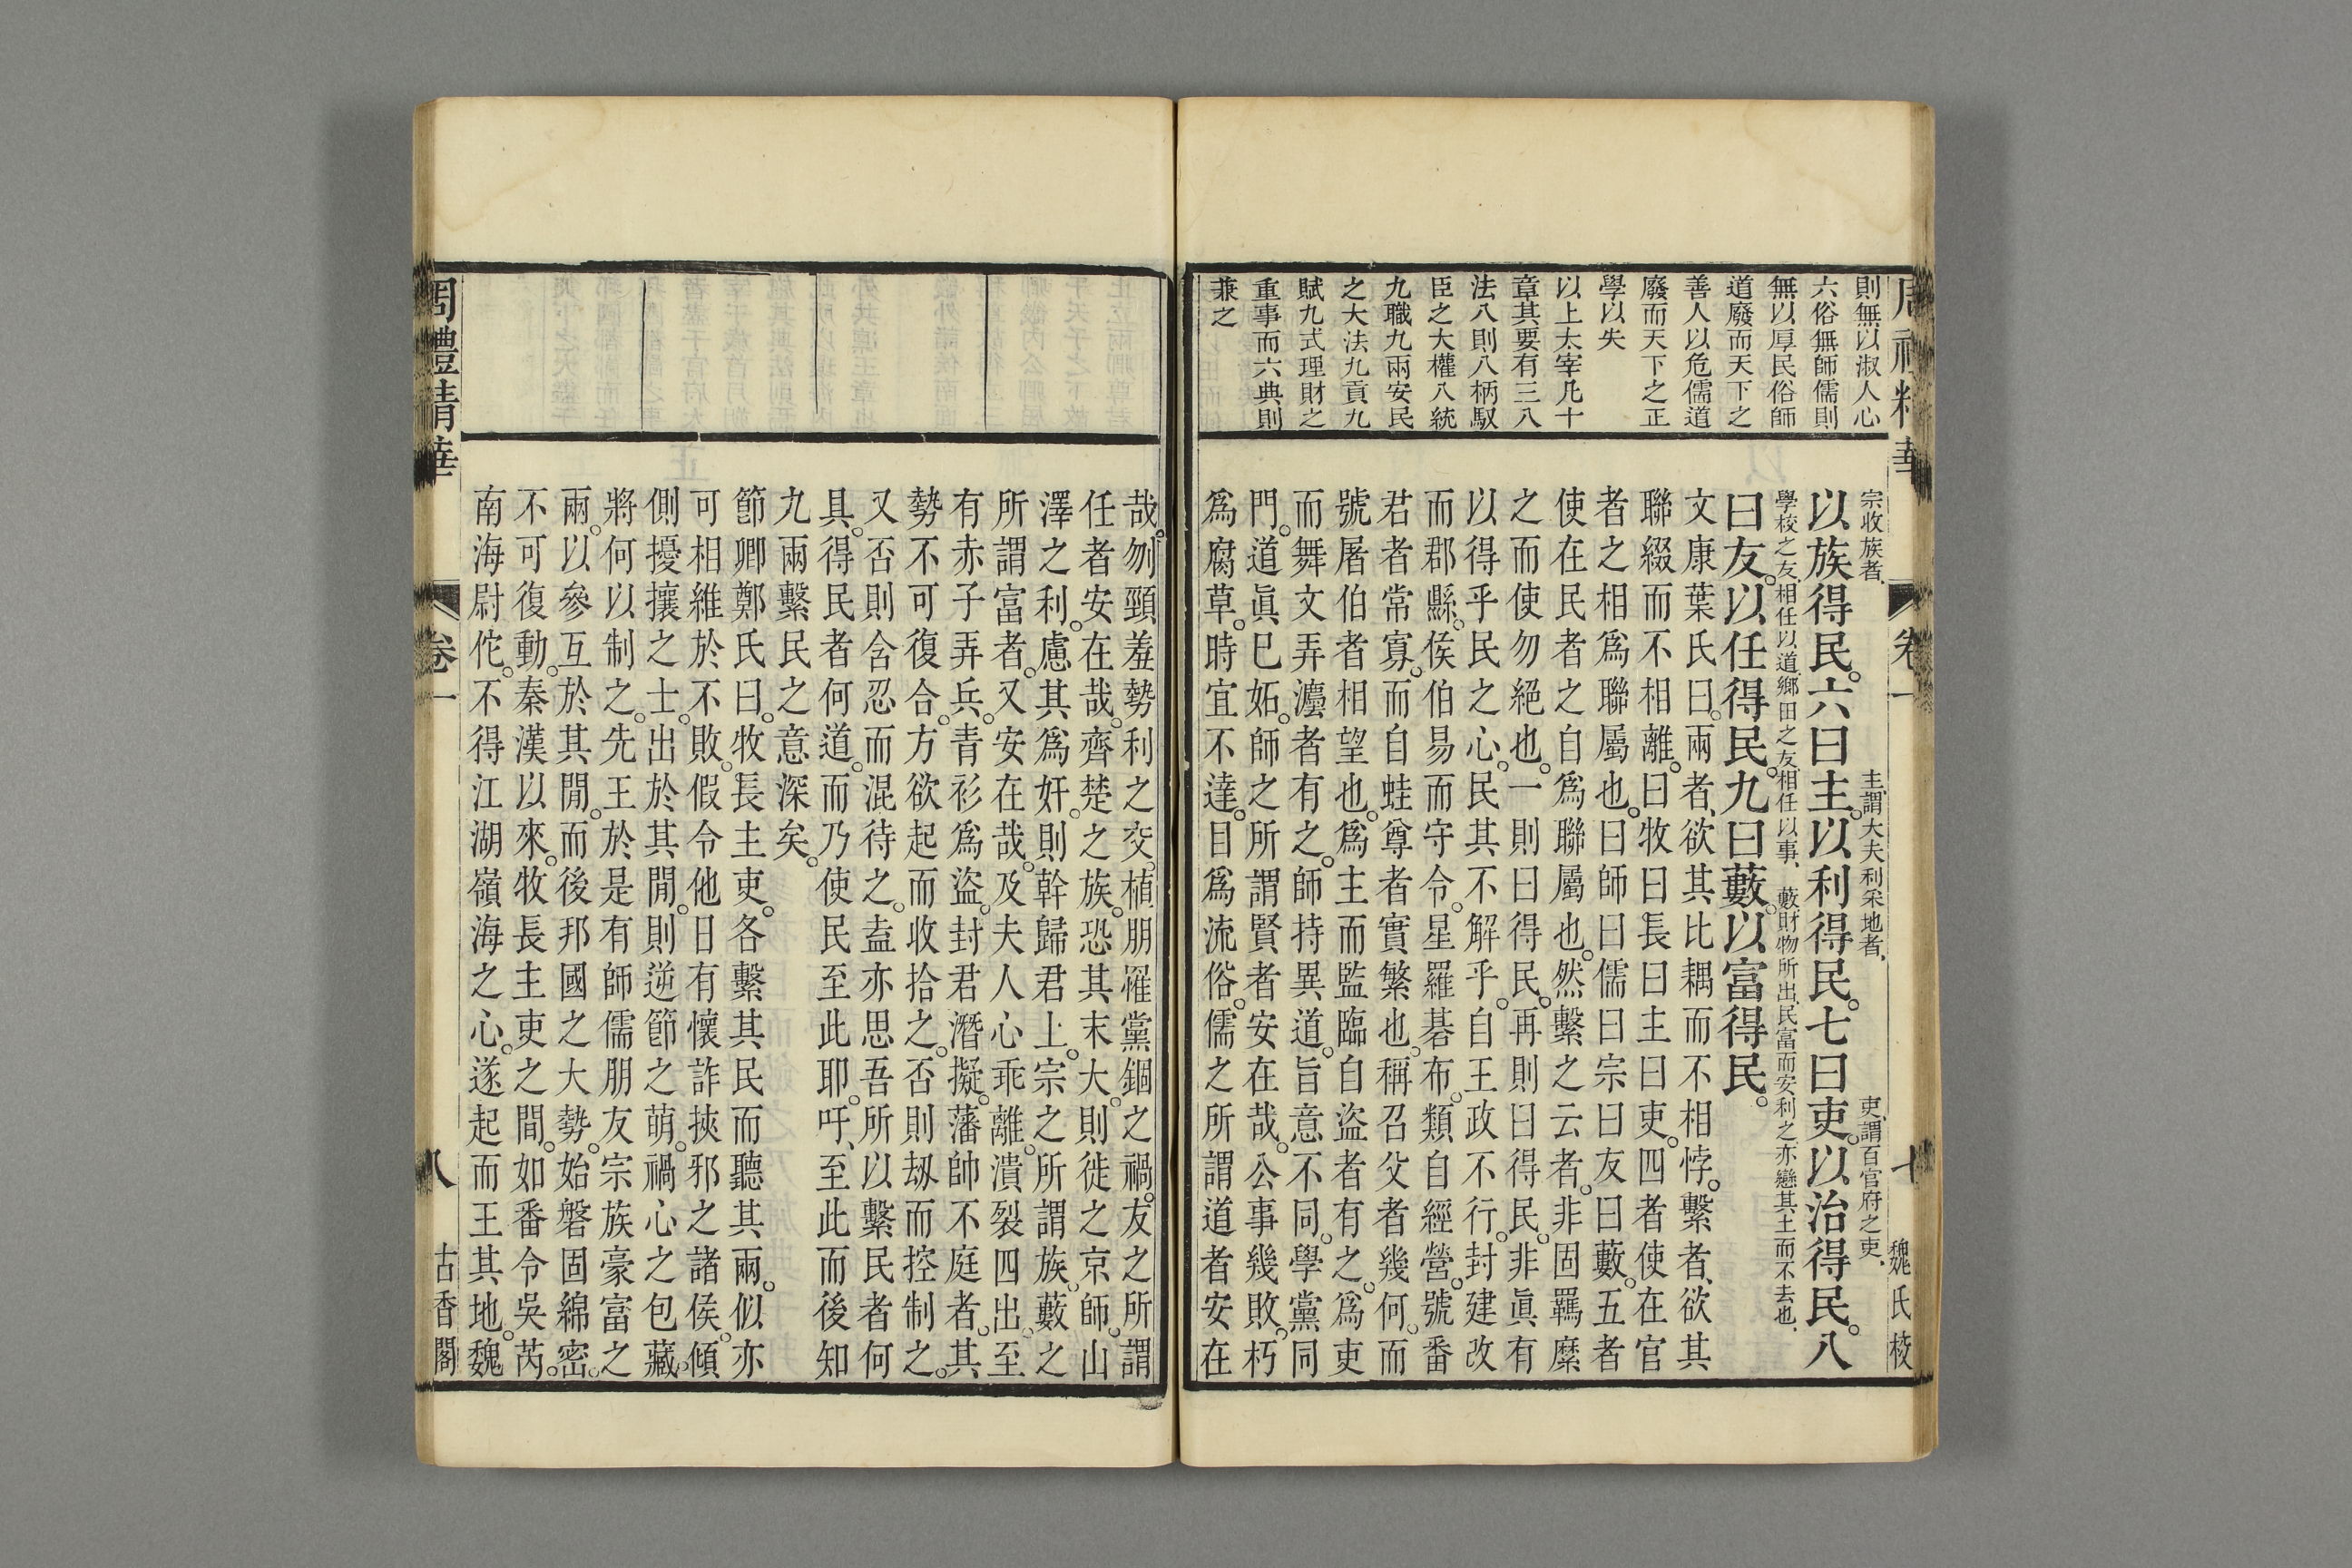 則無以淑人心
六俗無師儒則
無以厚民俗師
道廢而天下之
善人以危儒道
廢而天下之正
學以失
以上太宰凡十
章其要有三八
法八則八柄馭
臣之大權八統
九職九兩安民
之大法九貢九
賦九式理財之
重事而六典則
兼之
宗收族者、
主謂大夫利采地者、
吏、謂百官府之吏、
以族得民。六曰主。以利得民。七曰吏。以治得民。八
學校之友、相任以道、鄉田之友、相任以事、
藪財物所出、民富而安利之、亦戀其土而不去也、
曰友。以任得民。九曰藪。以富得民。
文康葉氏曰。兩者、欲其比耦而不相悖。繫者、欲其
聯綴而不相離。曰牧曰長曰主曰吏。四者使在官
者之相爲聯屬也。曰師曰儒曰宗曰友曰藪。五者
使在民者之自爲聯屬也。然繫之云者。非固羈縻
之而使勿絕也。一則曰得民。再則曰得民。非眞有
以得乎民之心。民其不解乎。自王政不行。封建改
而郡縣。侯伯易而守令。星羅碁布。類自經營。號番
君者常寡。而自蛙尊者實繁也。稱召父者幾何。而
號屠伯者相望也。爲主而監臨自盜者有之。爲吏
而舞文弄灋者有之。師持異道。旨意不同。學黨同
門。道眞巳妬。師之所謂賢者安在哉。公事幾敗。朽
爲腐草。時宜不達。目爲流俗。儒之所謂道者安在
周禮精華
卷一
七
魏氏校
哉。刎頸羞勢利之交。植朋罹黨錮之禍。友之所謂
任者安在哉。齊楚之族。恐其末大。則徙之京師。山
澤之利。慮其爲奸。則幹歸君上。宗之所謂族。藪之
所謂富者。又安在哉。及夫人心乖離。潰裂四出。至
有赤子弄兵。青衫爲盜。封君潛擬。藩帥不庭者。其
勢不可復合。方欲起而收拾之。否則刼而控制之。
又否則含忍而混待之。盍亦思吾所以繫民者何
具。得民者何道。而乃使民至此耶。吁、至此而後知
九兩繫民之意深矣。
節卿鄭氏曰。牧長主吏。各繫其民而聽其兩。似亦
可相維於不敗。假令他日有懷詐挾邪之諸侯。傾
側擾攘之士。出於其閒。則逆節之萌。禍心之包藏。
將何以制之。先王於是有師儒朋友宗族豪富之
兩。以參互於其閒。而後邦國之大勢。始磐固綿密。
不可復動。秦漢以來。牧長主吏之間。如番令吳芮。
南海尉佗。不得江湖嶺海之心。遂起而王其地。魏
周禮精華
卷一
八
古香閣